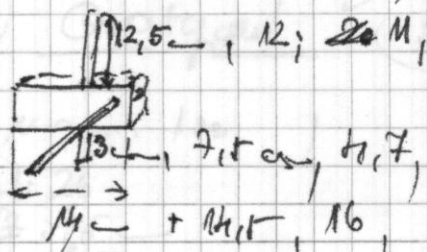 12,5 cm, 12; 11,
13 cm, 7,5 cm, 4,7,
14 cm + 14,5, 16,